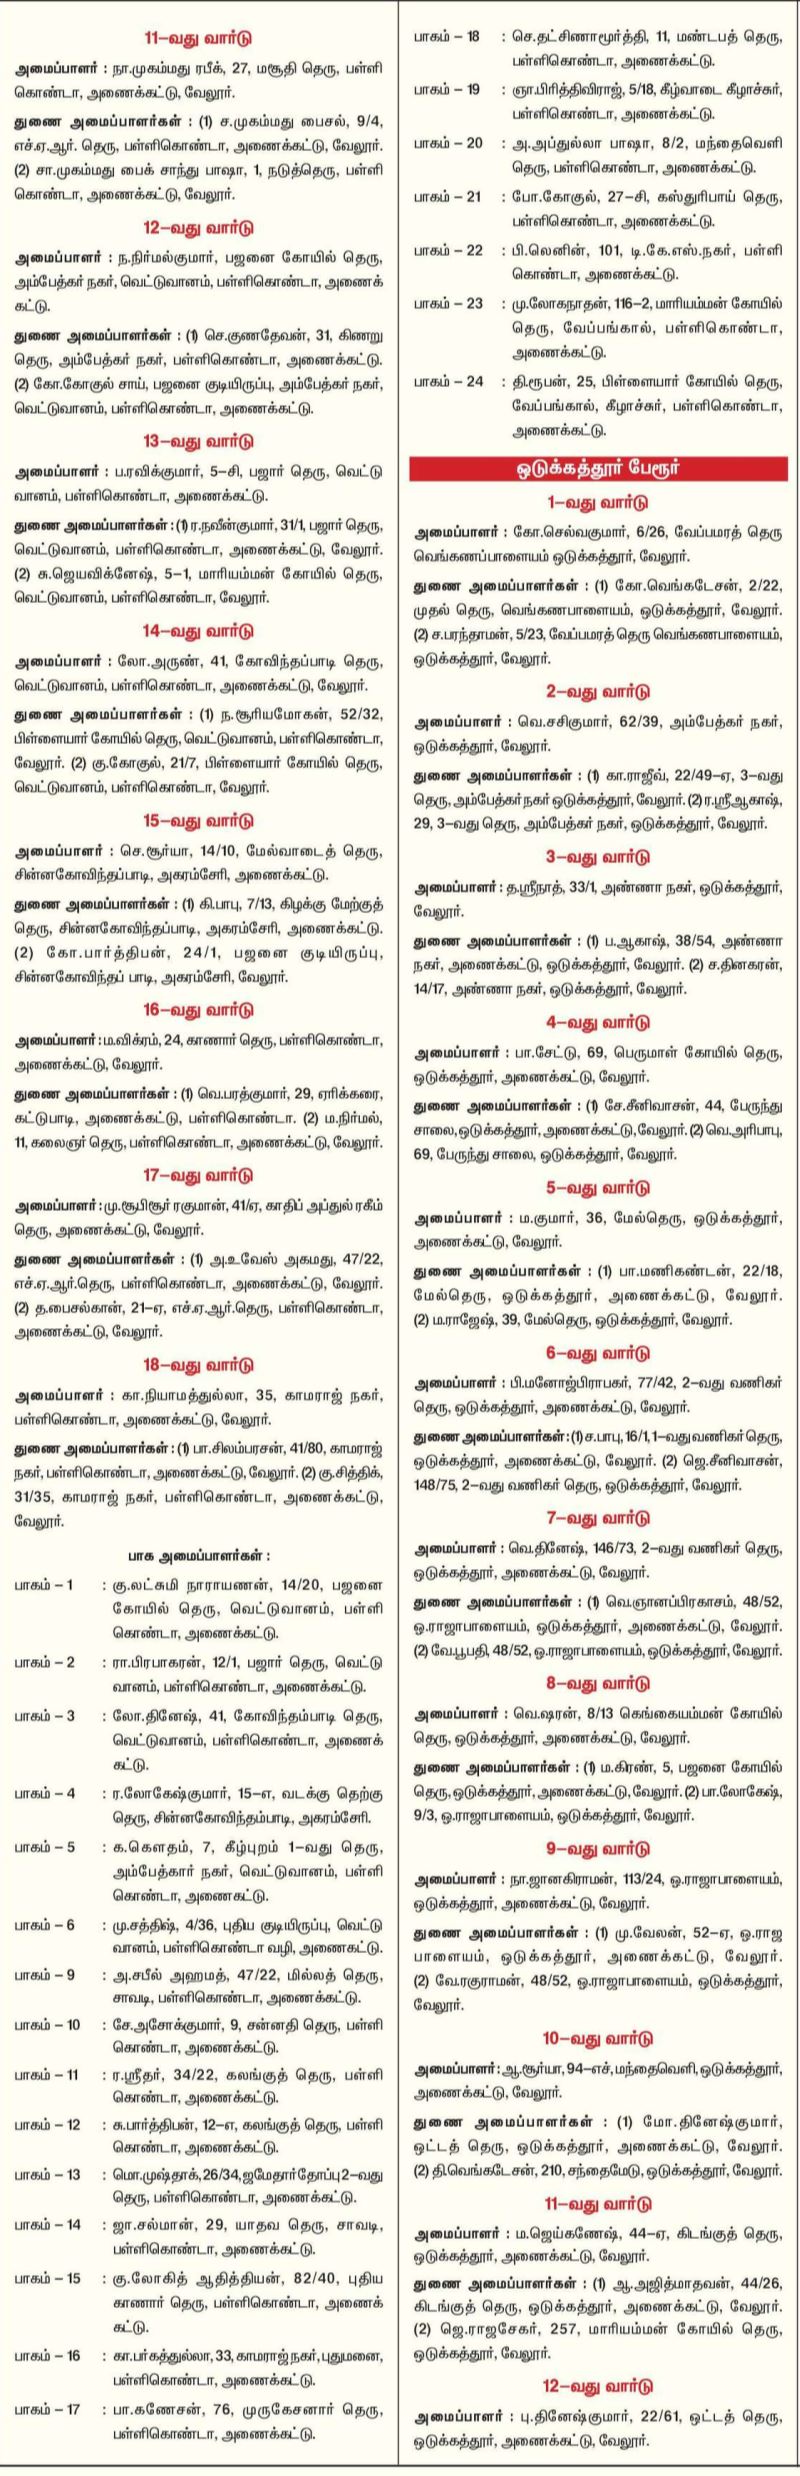 11–வது வார்டு
அமைப்பாளர் : நா.முகம்மது ரபீக், 27, மசூதி தெரு, பள்ளி
கொண்டா, அணைக்கட்டு, வேலூர்.
துணை அமைப்பாளர்கள் : (1) ச.முகம்மது பைசல், 9/4,
எச்.ஏ.ஆர். தெரு, பள்ளிகொண்டா, அணைக்கட்டு, வேலூர்.
(2) சா.முகம்மது பைக் சாந்து பாஷா, 1, நடுத்தெரு, பள்ளி
கொண்டா, அணைக்கட்டு, வேலூர்.
12–வது வார்டு
அமைப்பாளர் : ந.நிர்மல்குமார், பஜனை கோயில் தெரு,
அம்பேத்கர் நகர், வெட்டுவானம், பள்ளிகொண்டா, அணைக்
கட்டு.
துணை அமைப்பாளர்கள் : (1) செ.குணதேவன், 31, கிணறு
தெரு, அம்பேத்கர் நகர், பள்ளிகொண்டா, அணைக்கட்டு.
(2) கோ.கோகுல் சாய், பஜனை குடியிருப்பு, அம்பேத்கர் நகர்,
வெட்டுவானம், பள்ளிகொண்டா, அணைக்கட்டு.
13–வது வார்டு
அமைப்பாளர் : ப.ரவிக்குமார், 5–சி, பஜார் தெரு, வெட்டு
வானம், பள்ளிகொண்டா, அணைக்கட்டு.
துணை அமைப்பாளர்கள் : (1) ர.நவீன்குமார், 31/1, பஜார் தெரு,
வெட்டுவானம், பள்ளிகொண்டா, அணைக்கட்டு, வேலூர்.
(2) சு.ஜெயவிக்னேஷ், 5–1, மாரியம்மன் கோயில் தெரு,
வெட்டுவானம், பள்ளிகொண்டா, வேலூர்.
14–வது வார்டு
அமைப்பாளர் : லோ.அருண், 41, கோவிந்தப்பாடி தெரு,
வெட்டுவானம், பள்ளிகொண்டா, அணைக்கட்டு, வேலூர்.
துணை அமைப்பாளர்கள் : (1) ந.சூரியமோகன், 52/32,
பிள்ளையார் கோயில் தெரு, வெட்டுவானம், பள்ளிகொண்டா,
வேலூர். (2) கு.கோகுல், 21/7, பிள்ளையார் கோயில் தெரு,
வெட்டுவானம், பள்ளிகொண்டா, வேலூர்.
15–வது வார்டு
அமைப்பாளர் : செ.சூர்யா, 14/10, மேல்வாடைத் தெரு,
சின்னகோவிந்தப்பாடி, அகரம்சேரி, அணைக்கட்டு.
துணை அமைப்பாளர்கள் : (1) கி.பாபு, 7/13, கிழக்கு மேற்குத்
தெரு, சின்னகோவிந்தப்பாடி, அகரம்சேரி, அணைக்கட்டு.
(2) கோ.பார்த்திபன், 24/1, பஜனை குடியிருப்பு,
சின்னகோவிந்தப் பாடி, அகரம்சேரி, வேலூர்.
16–வது வார்டு
அமைப்பாளர் : ம.விக்ரம், 24, காணார் தெரு, பள்ளிகொண்டா,
அணைக்கட்டு, வேலூர்.
துணை அமைப்பாளர்கள் : (1) வெ.பரத்குமார், 29, ஏரிக்கரை,
கட்டுபாடி, அணைக்கட்டு, பள்ளிகொண்டா. (2) ம.நிர்மல்,
11, கலைஞர் தெரு, பள்ளிகொண்டா, அணைக்கட்டு, வேலூர்.
17–வது வார்டு
அமைப்பாளர் : மு.சூபிசூர் ரகுமான், 41/ஏ, காதிப் அப்துல் ரகீம்
தெரு, அணைக்கட்டு, வேலூர்.
துணை அமைப்பாளர்கள் : (1) அ.உவேஸ் அகமது, 47/22,
எச்.ஏ.ஆர்.தெரு, பள்ளிகொண்டா, அணைக்கட்டு, வேலூர்.
(2) த.பைசல்கான், 21–ஏ, எச்.ஏ.ஆர்.தெரு, பள்ளிகொண்டா,
அணைக்கட்டு, வேலூர்.
18–வது வார்டு
அமைப்பாளர் : கா.நியாமத்துல்லா, 35, காமராஜ் நகர்,
பள்ளிகொண்டா, அணைக்கட்டு, வேலூர்.
துணை அமைப்பாளர்கள் : (1) பா.சிலம்பரசன், 41/80, காமராஜ்
நகர், பள்ளிகொண்டா, அணைக்கட்டு, வேலூர். (2) கு.சித்திக்,
31/35, காமராஜ் நகர், பள்ளிகொண்டா, அணைக்கட்டு,
வேலூர்.
பாக அமைப்பாளர்கள் :
பாகம் – 1 : கு.லட்சுமி நாராயணன், 14/20, பஜனை
கோயில் தெரு, வெட்டுவானம், பள்ளி
கொண்டா, அணைக்கட்டு.
பாகம் – 2 : ரா.பிரபாகரன், 12/1, பஜார் தெரு, வெட்டு
வானம், பள்ளிகொண்டா, அணைக்கட்டு.
பாகம் – 3 : லோ.தினேஷ், 41, கோவிந்தம்பாடி தெரு,
வெட்டுவானம், பள்ளிகொண்டா, அணைக்
கட்டு.
பாகம் – 4 : ர.லோகேஷ்குமார், 15–எ, வடக்கு தெற்கு
தெரு, சின்னகோவிந்தம்பாடி, அகரம்சேரி.
பாகம் – 5 : க.கௌதம், 7, கீழ்புறம் 1–வது தெரு,
அம்பேத்கார் நகர், வெட்டுவானம், பள்ளி
கொண்டா, அணைகட்டு.
பாகம் – 6 : மு.சத்திஷ், 4/36, புதிய குடியிருப்பு, வெட்டு
வானம், பள்ளிகொண்டா வழி, அணைகட்டு.
பாகம் – 9 : அ.சபீல் அஹமத், 47/22, மில்லத் தெரு,
சாவடி, பள்ளிகொண்டா, அணைக்கட்டு.
பாகம் – 10 : சே.அசோக்குமார், 9, சன்னதி தெரு, பள்ளி
கொண்டா, அணைக்கட்டு.
பாகம் – 11 : ர.ஸ்ரீதர், 34/22, கலங்குத் தெரு, பள்ளி
கொண்டா, அணைக்கட்டு.
பாகம் – 12 : சு.பார்த்திபன், 12–எ, கலங்குத் தெரு, பள்ளி
கொண்டா, அணைக்கட்டு.
பாகம் – 13 : மொ.முஷ்தாக், 26/34, ஜமேதார்தோப்பு 2–வது
தெரு, பள்ளிகொண்டா, அணைக்கட்டு.
பாகம் – 14 : ஜா.சல்மான், 29, யாதவ தெரு, சாவடி,
பள்ளிகொண்டா, அணைக்கட்டு.
பாகம் – 15 : கு.லோகித் ஆதித்தியன், 82/40, புதிய
காணார் தெரு, பள்ளிகொண்டா, அணைக்
கட்டு.
பாகம் – 16 : கா.பர்கத்துல்லா, 33, காமராஜ் நகர், புதுமனை,
பள்ளிகொண்டா, அணைக்கட்டு.
பாகம் – 17 : பா.கணேசன், 76, முருகேசனார் தெரு,
பள்ளிகொண்டா, அணைக்கட்டு.
பாகம் – 18 : செ.தட்சிணாமூர்த்தி, 11, மண்டபத் தெரு,
பள்ளிகொண்டா, அணைக்கட்டு.
பாகம் – 19 : ஞா.பிரித்திவிராஜ், 5/18, கீழ்வாடை கீழாச்சுர்,
பள்ளிகொண்டா, அணைக்கட்டு.
பாகம் – 20 : அ.அப்துல்லா பாஷா, 8/2, மந்தைவெளி
தெரு, பள்ளிகொண்டா, அணைக்கட்டு.
பாகம் – 21 : போ.கோகுல், 27–சி, கஸ்துரிபாய் தெரு,
பள்ளிகொண்டா, அணைக்கட்டு.
பாகம் – 22 : பி.லெனின், 101, டி.கே.எஸ்.நகர், பள்ளி
கொண்டா, அணைக்கட்டு.
பாகம் – 23 : மு.லோகநாதன், 116–2, மாரியம்மன் கோயில்
தெரு, வேப்பங்கால், பள்ளிகொண்டா,
அணைக்கட்டு.
பாகம் – 24 : தி.ரூபன், 25, பிள்ளையார் கோயில் தெரு,
வேப்பங்கால், கீழாச்சுர், பள்ளிகொண்டா,
அணைக்கட்டு.
ஒடுக்கத்தூர் பேரூர்
1–வது வார்டு
அமைப்பாளர் : கோ.செல்வகுமார், 6/26, வேப்பமரத் தெரு
வெங்கணப்பாளையம் ஒடுக்கத்தூர், வேலூர்.
துணை அமைப்பாளர்கள் : (1) கோ.வெங்கடேசன், 2/22,
முதல் தெரு, வெங்கணபாளையம், ஒடுக்கத்தூர், வேலூர்.
(2) ச.பரந்தாமன், 5/23, வேப்பமரத் தெரு வெங்கணபாளையம்,
ஒடுக்கத்தூர், வேலூர்.
2–வது வார்டு
அமைப்பாளர் : வெ.சசிகுமார், 62/39, அம்பேத்கர் நகர்,
ஒடுக்கத்தூர், வேலூர்.
துணை அமைப்பாளர்கள் : (1) கா.ராஜீவ், 22/49–ஏ, 3–வது
தெரு, அம்பேத்கர் நகர் ஒடுக்கத்தூர், வேலூர். (2) ர.ஸ்ரீஆகாஷ்,
29, 3–வது தெரு, அம்பேத்கர் நகர், ஒடுக்கத்தூர், வேலூர்.
3–வது வார்டு
அமைப்பாளர் : த.ஸ்ரீநாத், 33/1, அண்ணா நகர், ஒடுக்கத்தூர்,
வேலூர்.
துணை அமைப்பாளர்கள் : (1) ப.ஆகாஷ், 38/54, அண்ணா
நகர், அணைக்கட்டு, ஒடுக்கத்தூர், வேலூர். (2) ச.தினகரன்,
14/17, அண்ணா நகர், ஒடுக்கத்தூர், வேலூர்.
4–வது வார்டு
அமைப்பாளர் : பா.சேட்டு, 69, பெருமாள் கோயில் தெரு,
ஒடுக்கத்தூர், அணைக்கட்டு, வேலூர்.
துணை அமைப்பாளர்கள் : (1) சே.சீனிவாசன், 44, பேருந்து
சாலை, ஒடுக்கத்தூர், அணைக்கட்டு, வேலூர். (2) வெ.அரிபாபு,
69, பேருந்து சாலை, ஒடுக்கத்தூர், வேலூர்.
5–வது வார்டு
அமைப்பாளர் : ம.குமார், 36, மேல்தெரு, ஒடுக்கத்தூர்,
அணைக்கட்டு, வேலூர்.
துணை அமைப்பாளர்கள் : (1) பா.மணிகண்டன், 22/18,
மேல்தெரு, ஒடுக்கத்தூர், அணைக்கட்டு, வேலூர்.
(2) ம.ராஜேஷ், 39, மேல்தெரு, ஒடுக்கத்தூர், வேலூர்.
6–வது வார்டு
அமைப்பாளர் : பி.மனோஜ்பிராபகர், 77/42, 2–வது வணிகர்
தெரு, ஒடுக்கத்தூர், அணைக்கட்டு, வேலூர்.
துணை அமைப்பாளர்கள் : (1) ச.பாபு, 16/1, 1–வது வணிகர் தெரு,
ஒடுக்கத்தூர், அணைக்கட்டு, வேலூர். (2) ஜெ.சீனிவாசன்,
148/75, 2–வது வணிகர் தெரு, ஒடுக்கத்தூர், வேலூர்.
7–வது வார்டு
அமைப்பாளர் : வெ.தினேஷ், 146/73, 2–வது வணிகர் தெரு,
ஒடுக்கத்தூர், அணைக்கட்டு, வேலூர்.
துணை அமைப்பாளர்கள் : (1) வெ.ஞானப்பிரகாசம், 48/52,
ஒ.ராஜாபாளையம், ஒடுக்கத்தூர், அணைக்கட்டு, வேலூர்.
(2) வே.பூபதி, 48/52, ஒ.ராஜாபாளையம், ஒடுக்கத்தூர், வேலூர்.
8–வது வார்டு
அமைப்பாளர் : வெ.ஷரன், 8/13 கெங்கையம்மன் கோயில்
தெரு, ஒடுக்கத்தூர், அணைக்கட்டு, வேலூர்.
துணை அமைப்பாளர்கள் : (1) ம.கிரண், 5, பஜனை கோயில்
தெரு, ஒடுக்கத்தூர், அணைக்கட்டு, வேலூர். (2) பா.லோகேஷ்,
9/3, ஒ.ராஜாபாளையம், ஒடுக்கத்தூர், வேலூர்.
9–வது வார்டு
அமைப்பாளர் : நா.ஜானகிராமன், 113/24, ஒ.ராஜாபாளையம்,
ஒடுக்கத்தூர், அணைக்கட்டு, வேலூர்.
துணை அமைப்பாளர்கள் : (1) மு.வேலன், 52–ஏ, ஒ.ராஜ
பாளையம், ஒடுக்கத்தூர், அணைக்கட்டு, வேலூர்.
(2) வே.ரகுராமன், 48/52, ஒ.ராஜாபாளையம், ஒடுக்கத்தூர்,
வேலூர்.
10–வது வார்டு
அமைப்பாளர் : ஆ.சூர்யா, 94–எச், மந்தைவெளி, ஒடுக்கத்தூர்,
அணைக்கட்டு, வேலூர்.
துணை அமைப்பாளர்கள் : (1) மோ.தினேஷ்குமார்,
ஒட்டத் தெரு, ஒடுக்கத்தூர், அணைக்கட்டு, வேலூர்.
(2) தி.வெங்கடேசன், 210, சந்தைமேடு, ஒடுக்கத்தூர், வேலூர்.
11–வது வார்டு
அமைப்பாளர் : ம.ஜெய்கணேஷ், 44–ஏ, கிடங்குத் தெரு,
ஒடுக்கத்தூர், அணைக்கட்டு, வேலூர்.
துணை அமைப்பாளர்கள் : (1) ஆ.அஜித்மாதவன், 44/26,
கிடங்குத் தெரு, ஒடுக்கத்தூர், அணைக்கட்டு, வேலூர்.
(2) ஜெ.ராஜசேகர், 257, மாரியம்மன் கோயில் தெரு,
ஒடுக்கத்தூர், வேலூர்.
12–வது வார்டு
அமைப்பாளர் : பு.தினேஷ்குமார், 22/61, ஒட்டத் தெரு,
ஒடுக்கத்தூர், அணைக்கட்டு, வேலூர்.